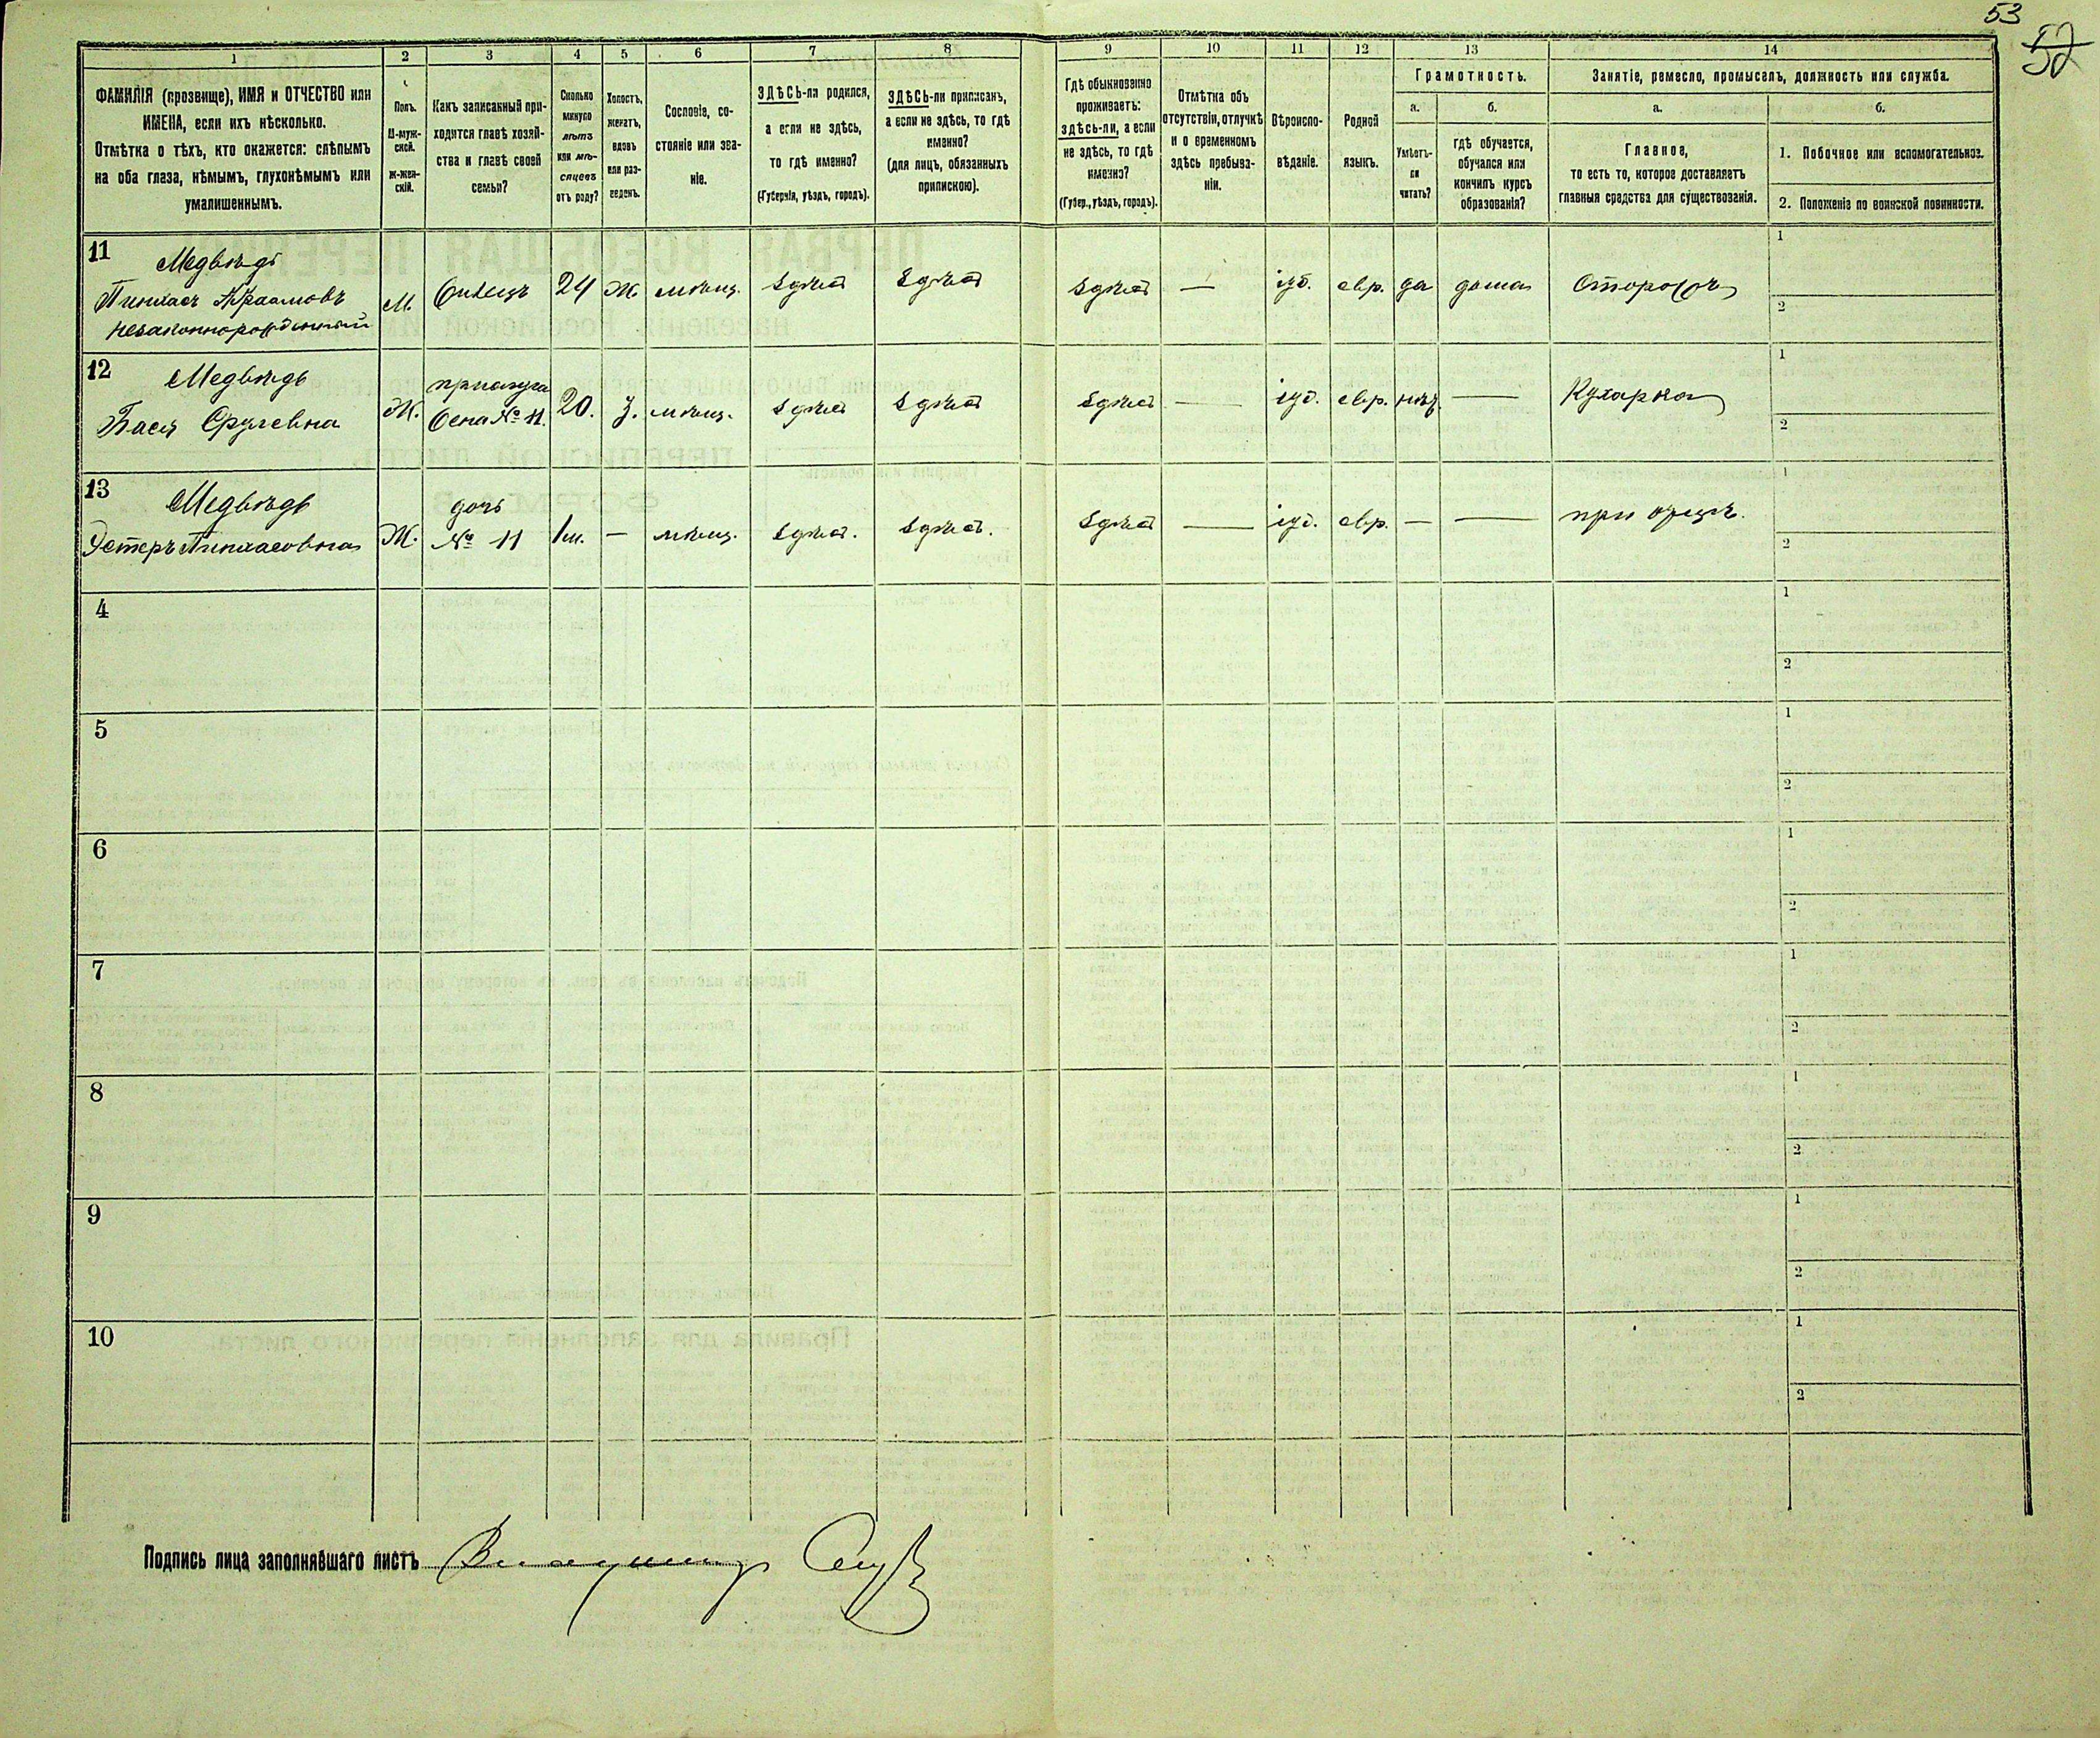 53
52
1 2 3 4 5 6 7 8 9 10 11 12 13 14
ФАМИЛІЯ (прозвище), ИМЯ и ОТЧЕСТВО или
ИМЕНА, если ихъ нѣсколько.
Отмѣтка о тѣхъ, кто окажется: слѣпымъ
на оба глаза, нѣмымъ, глухонѣмымъ или
умалишеннымъ.
Полъ.
М-муж-
ской.
Ж-жен-
скій.
Какъ записанный при-
ходится главѣ хозяй-
ства и главѣ своей
семьи?
Сколько
минуло
лѣтъ
или мѣ-
сяцевъ
отъ роду?
Холостъ,
женатъ,
вдовъ
или раз-
веденъ.
Сословіе, со-
стояніе или зва-
ніе.
ЗДѢСЬ-ли родился,
а если не здѣсь,
то гдѣ именно?
(Губернія, уѣздъ, городъ).
ЗДѢСЬ-ли приписанъ,
а если не здѣсь, то гдѣ
именно?
(для лицъ, обязанныхъ
припискою).
Гдѣ обыкновенно
проживаетъ:
здѣсь-ли, а если
не здѣсь, то гдѣ
именно?
(Губер., уѣздъ, городъ).
Отмѣтка объ
отсутствіи, отлучкѣ
и о временномъ
здѣсь пребыва-
ніи.
Вѣроиспо-
вѣданіе.
Родной
языкъ.
Грамотность.
а.
Умѣетъ-
ли
читать?
б.
гдѣ обучается,
обучался или
кончилъ курсъ
образованія?
Занятіе, ремесло, промыселъ, должность или служба.
а.
Главное,
то есть то, которое доставляетъ
главныя средства для существованія.
б.
1. Побочное или вспомогательное.
2. Положеніе по воинской повинности.
11 Медвѣдь
Пинхасъ
незаконнорожденный
М. 24 Ж. мѣщ. здѣсь здѣсь здѣсь — іуд. евр. да дома Сторожъ 1
2
12 Медвѣдь
Бася Срулевна
Ж. прислуга
жена № 11. 20. З. мѣщ. здѣсь здѣсь здѣсь — іуд. евр. нѣт — Кухарка 1
2
13 Медвѣдь
Эстеръ Пинхасовна
Ж. дочь
№ 11 1м. — мѣщ. здѣсь. здѣсь. здѣсь — іуд. евр. — — при отцѣ. 1
2
4 1
2
5 1
2
6 1
2
7 1
2
8 1
2
9 1
2
10 1
2
Подпись лица заполнявшаго листъ Владимир